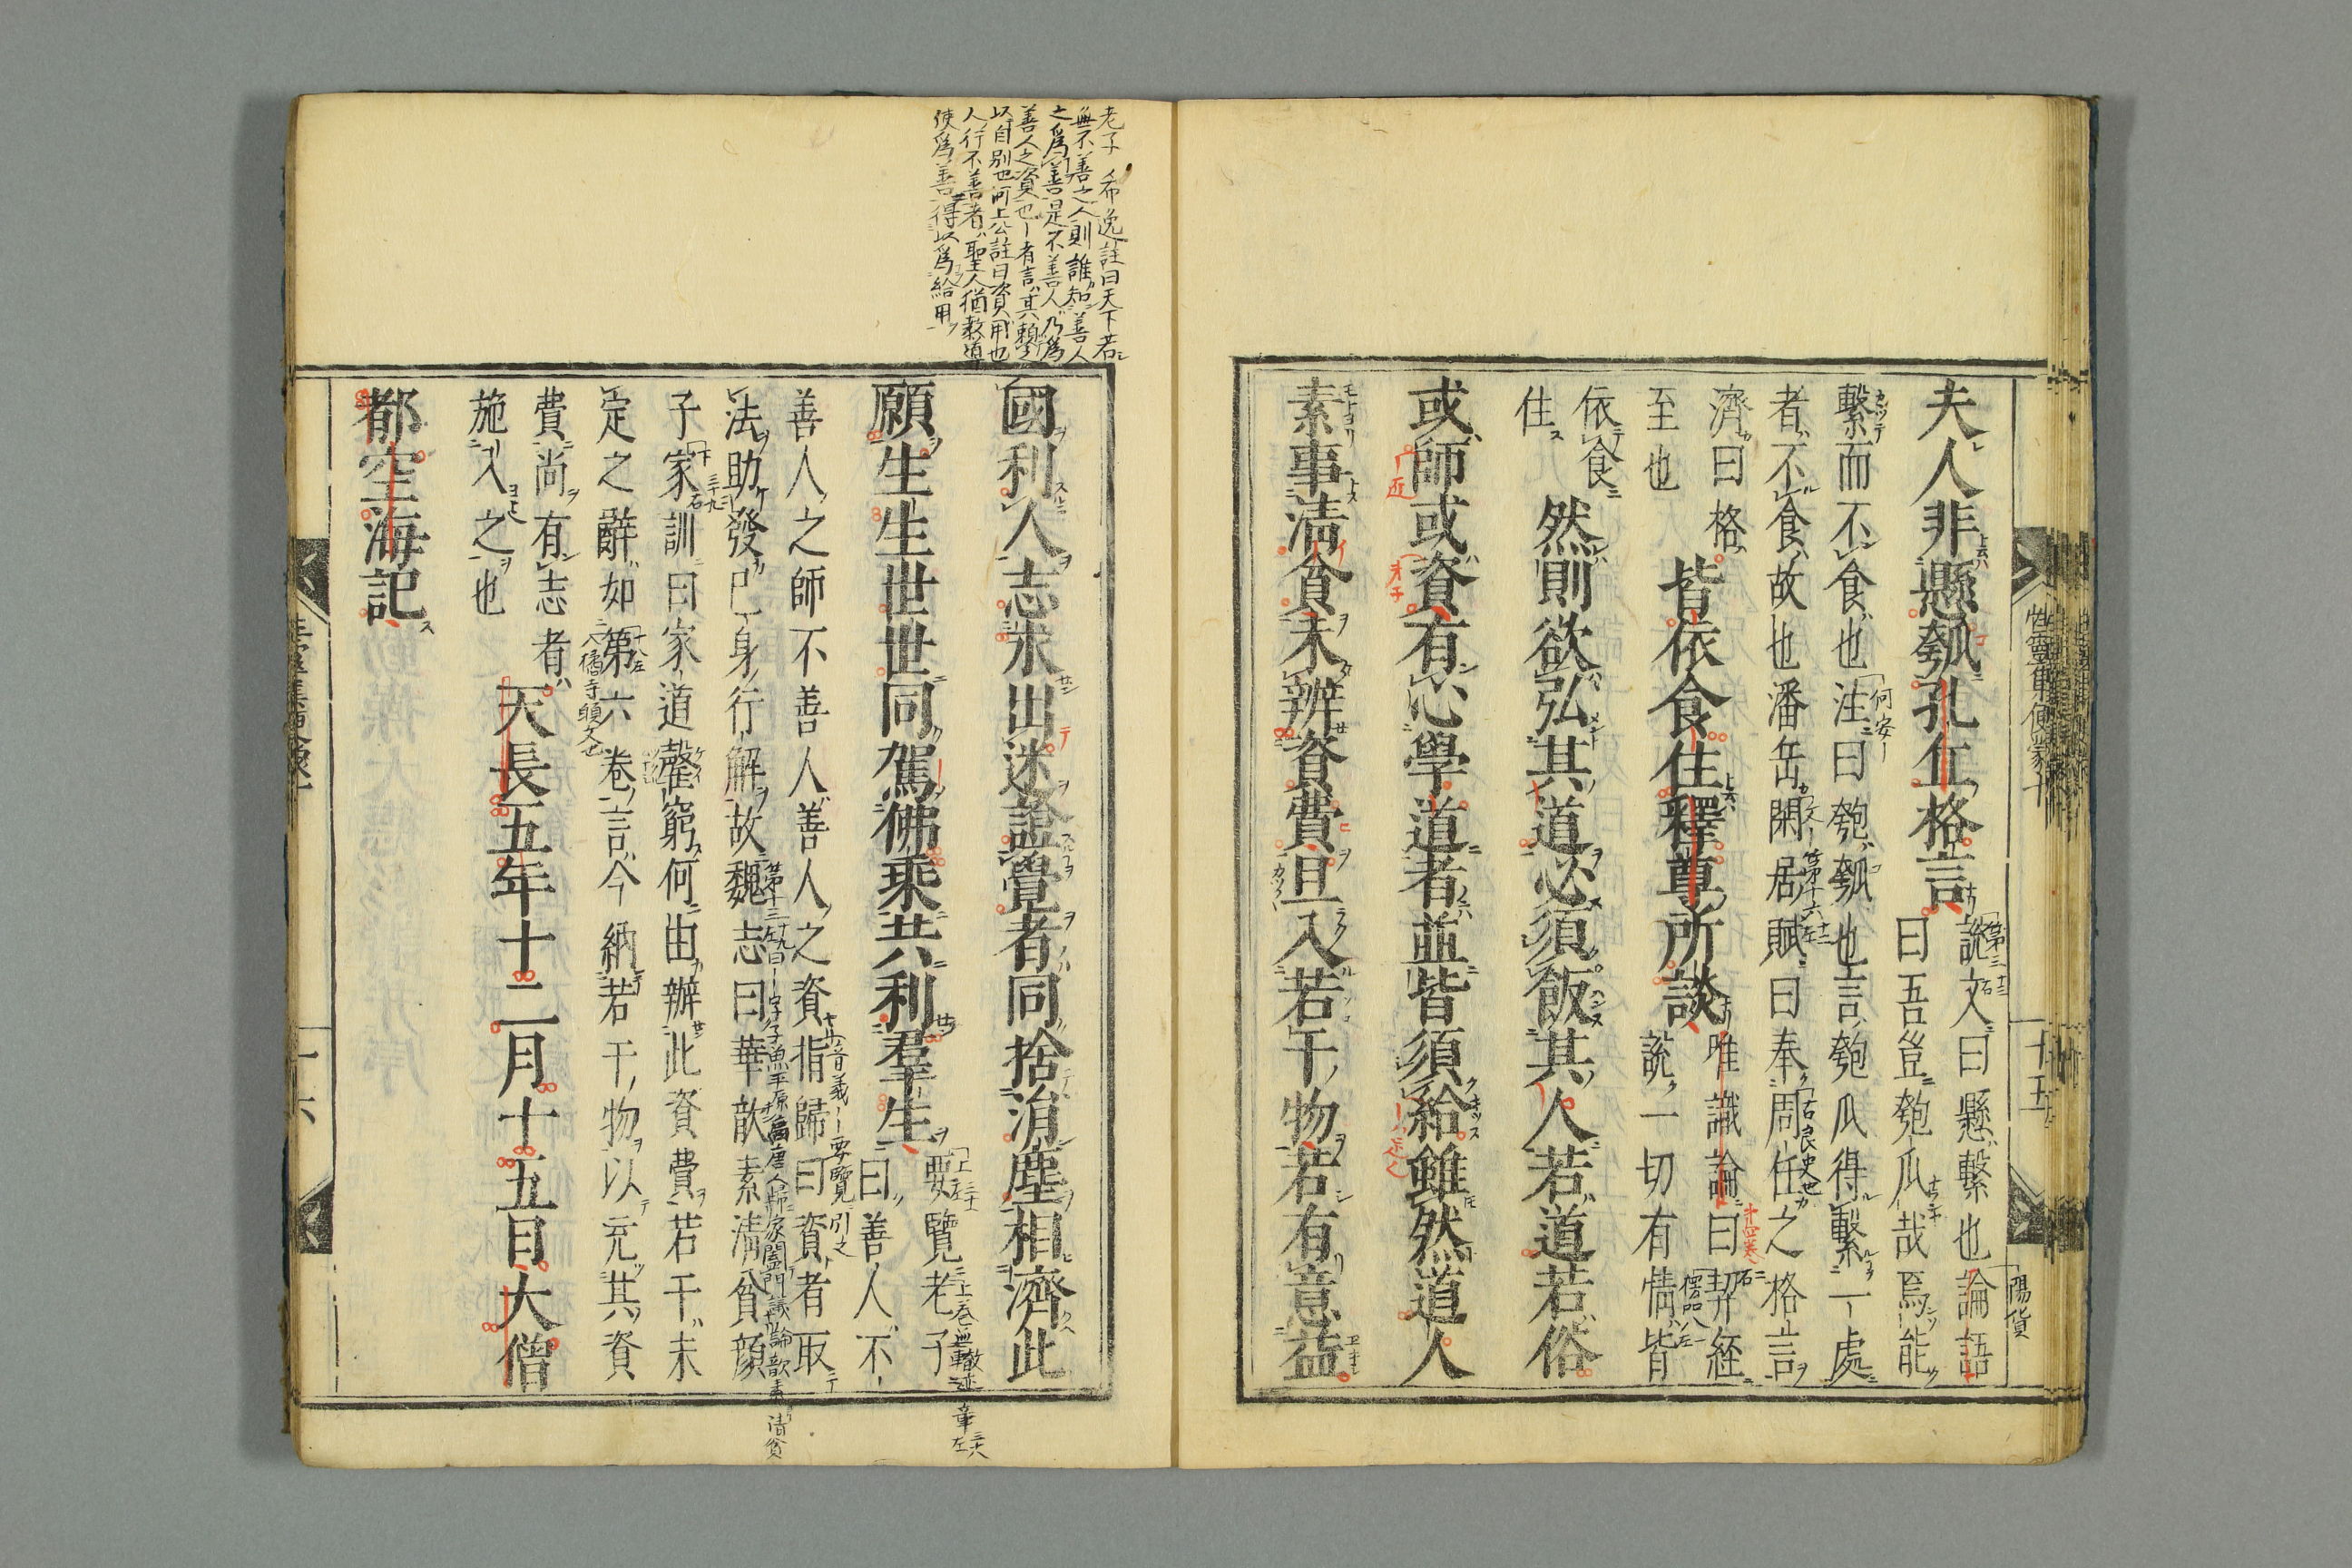 夫人非懸瓠孔丘格言
說文曰懸繫也論語
曰吾豈匏瓜哉焉能
繫而不食也注曰匏瓠也言匏瓜得繫一處
者不食故也潘岳閑居賦曰奉周任之格言
濟曰格
至也
皆依食住釋尊所談
唯識論曰契經
說一切有情皆
依食
住
然則欲弘其道必須飯其人若道若俗
或師或資有心學道者並皆須給雖然道人
素事清貧未辨資費且入若干物若有意益
國利人志求出迷證覺者同捨涓塵相濟此
願生生世世同駕佛乘共利羣生
要覽老子
曰善人不
善人之師不善人善人之資指歸曰資者取
法助發已身行解故魏志曰華歆素清貧顏
子家訓曰家道罄窮何由辦此資費若干未
定之辭如第六卷言今納若干物以充其資
費尚有志者
施入之也
天長五年十二月十五日大僧
都空海記
老子 希逸註曰天下若
無不善之人則誰知善人
之爲善是不善人乃爲
善人之資也者言其賴
以自別也河上公註曰資用也
人行不善者聖人猶教導
使爲善得以爲給用
性靈集便蒙十
十五